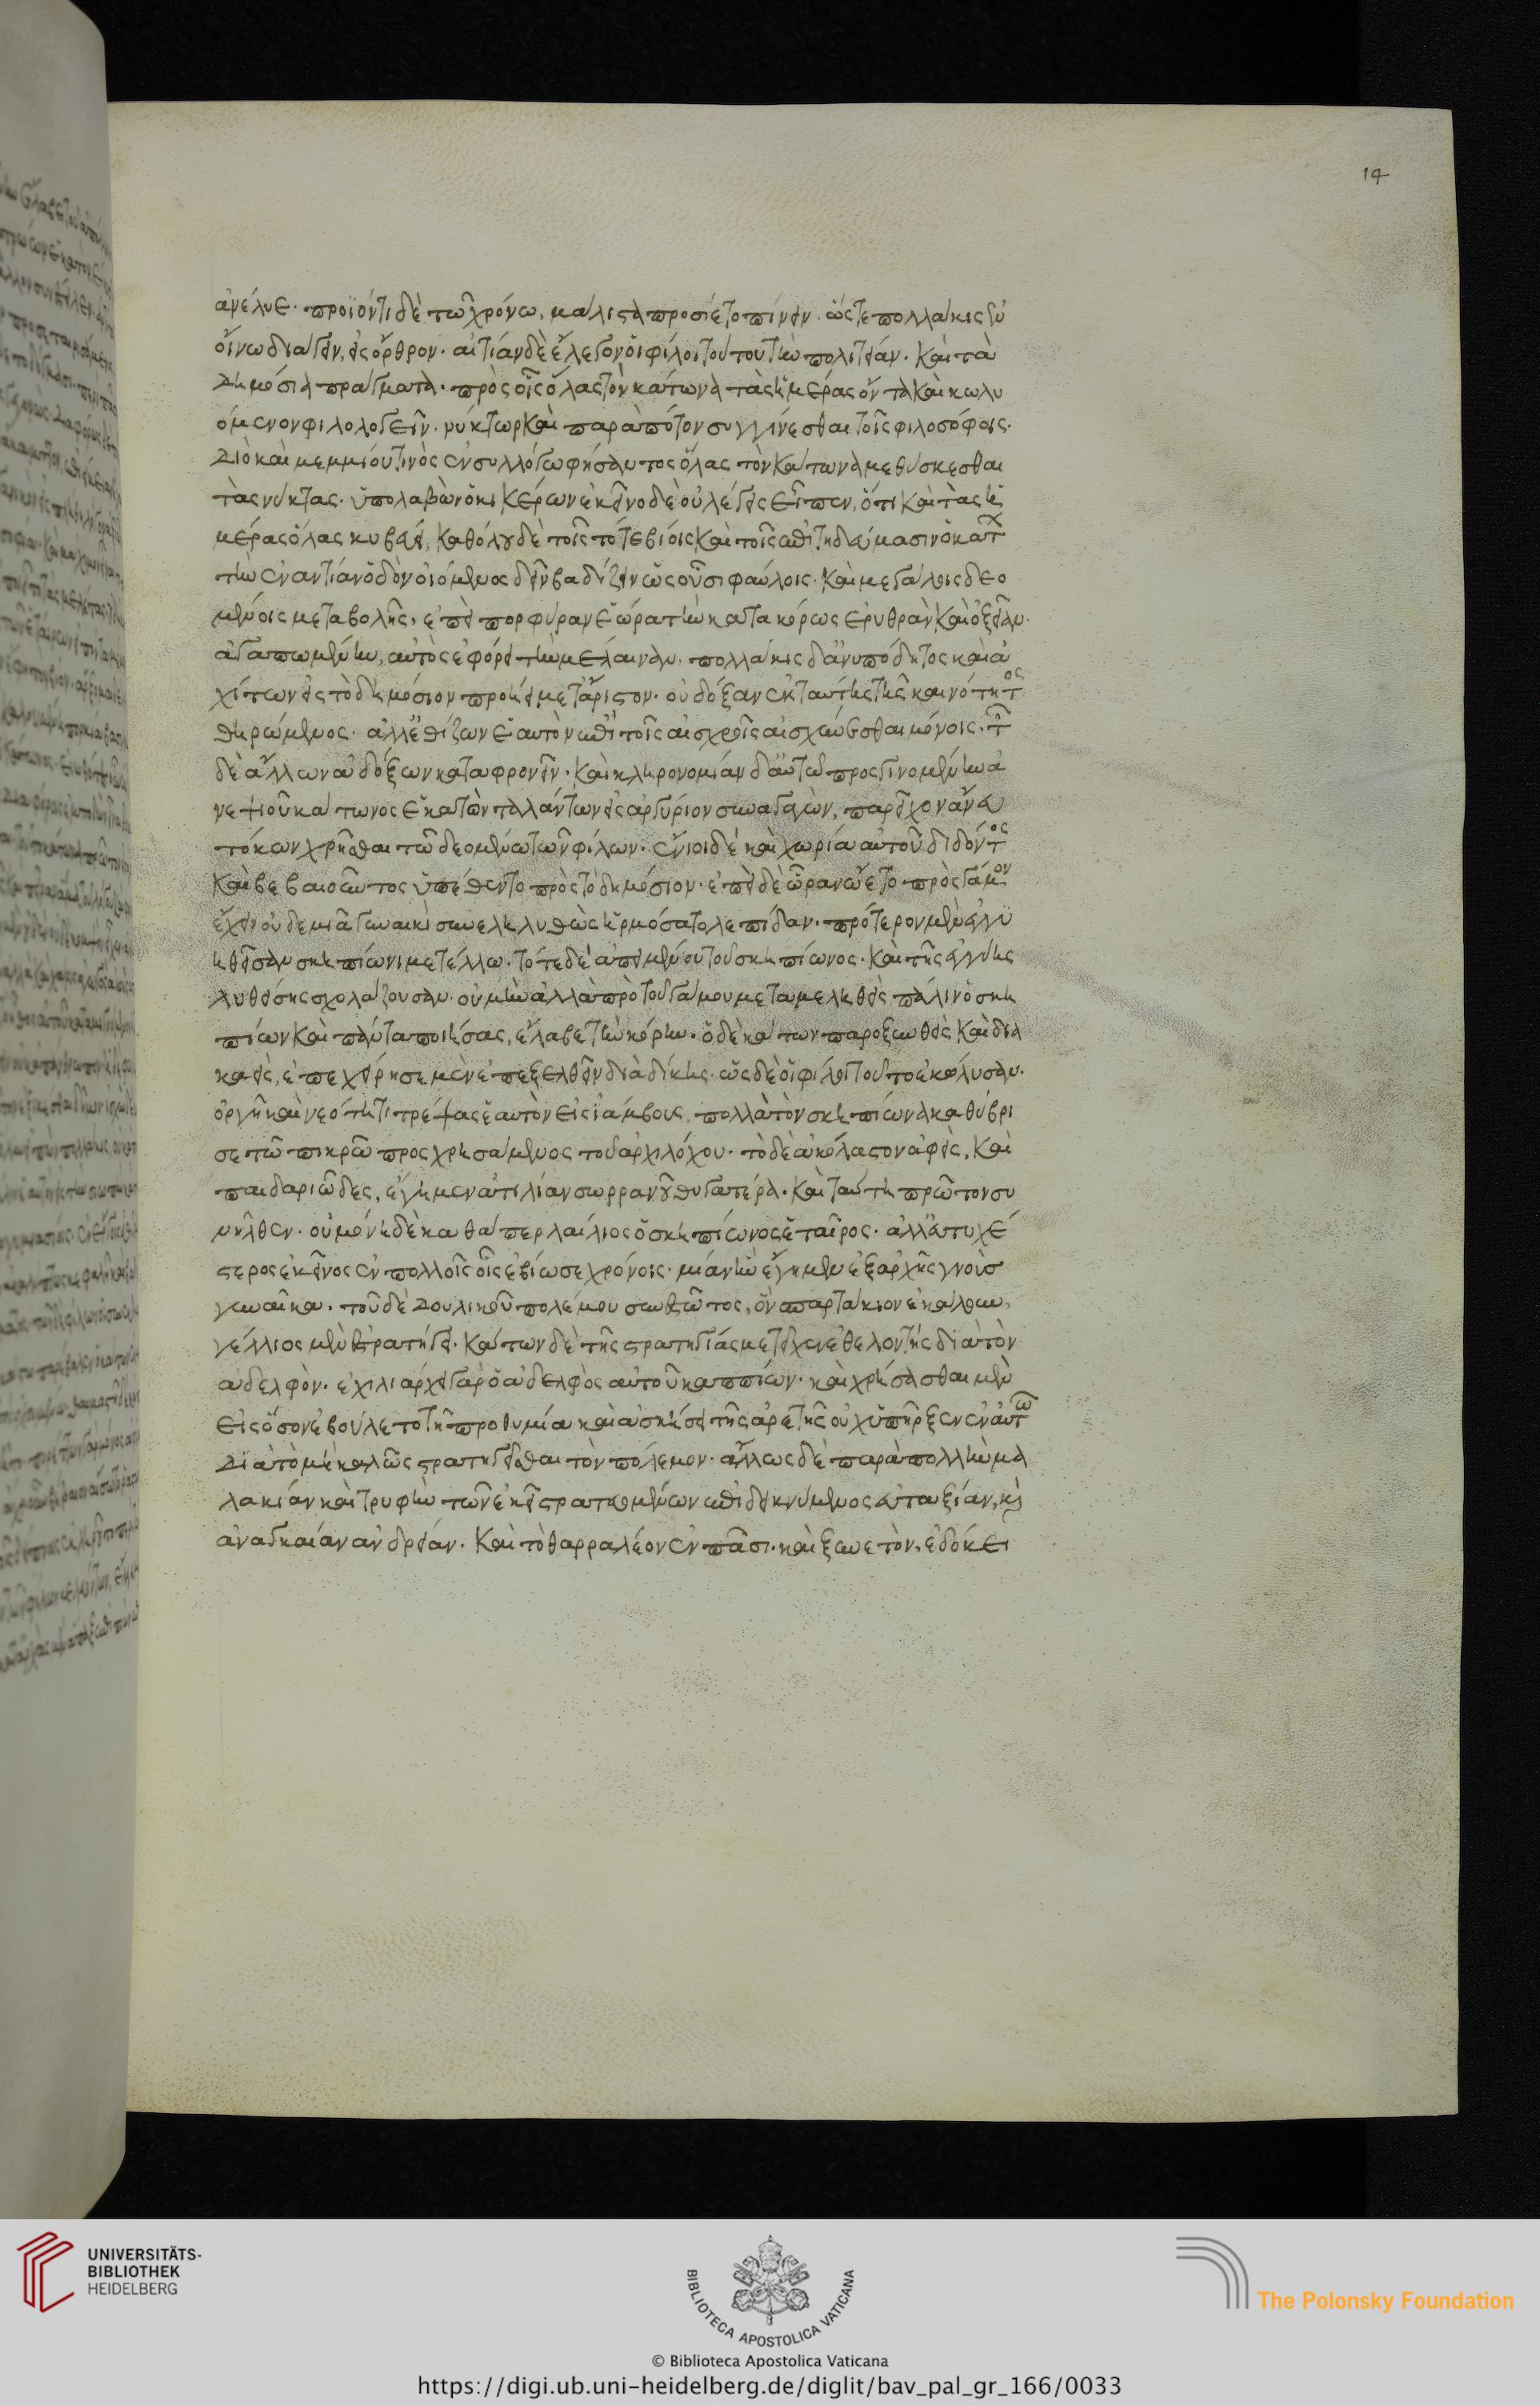 14
ἀνέλυε. προϊόντι δὲ τῶ χρόνω, μάλιστα προσίετο πίνειν. ὥστε πολλάκις ἐν
οἴνω διάγειν, εἰς ὄρθρον. αἰτίαν δὲ ἔλεγον οἱ φίλοι τούτου τὴν πολιτείαν. καὶ τὰ
δημόσια πράγματα. πρὸς οἷς ὅλας τὸν κάτωνα τὰς ἡμέρας ὄντα καὶ κωλυ
όμενον φιλολογεῖν. νύκτωρ καὶ παρὰ πότον συγγίνεσθαι τοῖς φιλοσόφοις.
διὸ καὶ μεμμίου τινὸς ἐν συλλόγω φήσαντος ὅλας τὸν κάτωνα μεθύσκεσθαι
τὰς νύκτας. ὑπολαβὼν ὁ κικέρων ἐκεῖνο δὲ οὐ λέγεις εἶπεν, ὅτι καὶ τὰς ἡ
μέρας ὅλας κυβεύει, καθόλου δὲ τοῖς τότε βίοις καὶ τοῖς ἐπιτηδεύμασιν ὁ κατ
τὴν ἐναντίαν ὁδὸν οἰόμενος δεῖν βαδίζειν ὡς οὖσι φαύλοις. καὶ μεγάλης δεο
μένοις μεταβολῆς, ἐπεὶ πορφύραν ἑώρα τὴν κατακόρως ἐρυθρὰν καὶ ὀξεῖαν
ἀγαπωμένην, αὐτὸς ἐφόρει τὴν μέλαιναν. πολλάκις δ' ἀνυπόδητος καὶ ἀ
χίτων εἰς τὸ δημόσιον προήει μετ' ἄριστον. οὐ δόξαν ἐκ ταύτης τῆς καινότητος
θηρώμενος. ἀλλ' ἐθίζων ἑαυτὸν ἐπὶ τοῖς αἰσχροῖς αἰσχύνεσθαι μόνοις. τῶν
δὲ ἄλλων ἀδόξων καταφρονεῖν. καὶ κληρονομίαν δ' αὐτῶ προσγινομένην ἀ
νεψιοῦ κάτωνος ἑκατὸν ταλάντων εἰς ἀργύριον συναγαγὼν, παρεῖχον ἄνευ
τόκων χρῆσθαι τῶ δεομένω τῶν φίλων. ἔνιοι δὲ καὶ χωρία αὐτοῦ διδόντος
καὶ βεβαιοῦντος ὑπέθεντο πρὸς τὸ δημόσιον. ἐπεὶ δὲ ὥραν ὤετο πρὸς γάμον
ἔχειν οὐδεμιᾶ γυναικὶ συνεληλυθὼς ἡρμόσατο λεπίδαν. πρότερον μὲν ἐγγυ
ηθεῖσαν σκηπίωνι μετέλλω. τότε δὲ ἀπειμένου τοῦ σκηπίωνος. καὶ τῆς ἐγγύης
λυθείσης σχολάζουσαν. οὐ μὴν ἀλλὰ πρὸ τοῦ γάμου μεταμεληθεὶς πάλιν ὁ σκη
πίων καὶ πάντα ποιήσας, ἔλαβε τὴν κόρην. ὁ δὲ κάτων παροξυνθεὶς καὶ δια
καεὶς, ἐπεχείρησε μὲν ἐπεξελθεῖν διὰ δίκης. ὡς δὲ οἱ φίλοι τοῦτο ἐκώλυσαν.
ὀργῆ καὶ νεότητι τρέψας ἑαυτὸν εἰς ἰάμβους, πολλὰ τὸν σκηπίωνα καθύβρι
σε τῶ πικρῶ προσχρησάμενος τοῦ ἀρχιλόχου. τὸ δὲ ἀκόλαστον ἀφεὶς, καὶ
παιδαριῶδες, ἔγημεν ἀτιλίαν σωρρανοῦ θυγατέρα. καὶ ταύτη πρῶτον συ
νῆλθεν. οὐ μόνη δὲ καθάπερ λαίλιος ὁ σκηπίωνος ἑταῖρος. ἀλλ' εὐτυχέ
στερος ἐκεῖνος ἐν πολλοῖς οἷς ἐβίωσε χρόνοις. μίαν ἣν ἔγημεν ἐξ ἀρχῆς γνοὺς
γυναῖκα. τοῦ δὲ δουλικοῦ πολέμου συνεστῶτος, ὃν σπαρτάκιον ἐκάλουν,
γέλλιος μὲν ἐστρατήγει. κάτων δὲ τῆς στρατηγίας μετεῖχεν ἐθελοντὴς διὰ τὸν
ἀδελφόν. ἐχιλιάρχει γὰρ ὁ ἀδελφὸς αὐτοῦ καππίων. καὶ χρήσασθαι μὲν
εἰς ὅσον ἐβούλετο τῆ προθυμία καὶ ἀσκήσει τῆς ἀρετῆς οὐχ ὑπῆρξεν ἐν αὐτῶ
διὰ τὸ μὴ καλῶς στρατηγεῖσθαι τὸν πόλεμον. ἄλλως δὲ παρὰ πολλὴν μα
λακίαν καὶ τρυφὴν τῶν ἐκεῖ στρατευομένων ἐπιδεικνύμενος εὐταξίαν, καὶ
ἀναγκαίαν ἀνδρείαν. καὶ τὸ θαρραλέον ἐν πᾶσι. καὶ ξυνετὸν, ἐδόκει
UNIVERSITÄTS-
BIBLIOTHEK
HEIDELBERG
BIBLIOTECA APOSTOLICA VATICANA
The Polonsky Foundation
© Biblioteca Apostolica Vaticana
https://digi.ub.uni-heidelberg.de/diglit/bav_pal_gr_166/0033